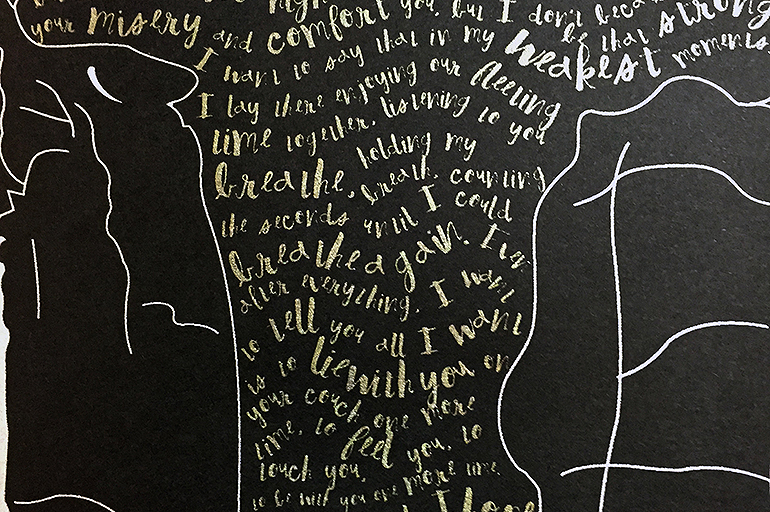 your misery and comfort you, but I don't
be that strong
I want to say that in my weakest moments
I lay there enjoying our fleeting
time together, listening to you
breathe, holding my breath, counting
the seconds until I could
breathe again. Even
after everything, I want
to tell you all I want
is to lie with you on
your couch one more
time, to feel you, to
touch you,
to be with you one more time.
I love